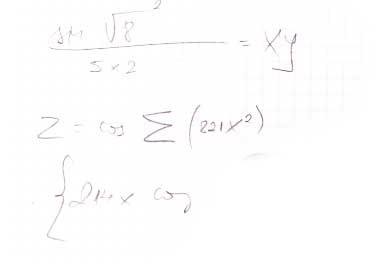 sin √8²
5x2
= xy
z = cos Σ (221x²)
{ 214x cos